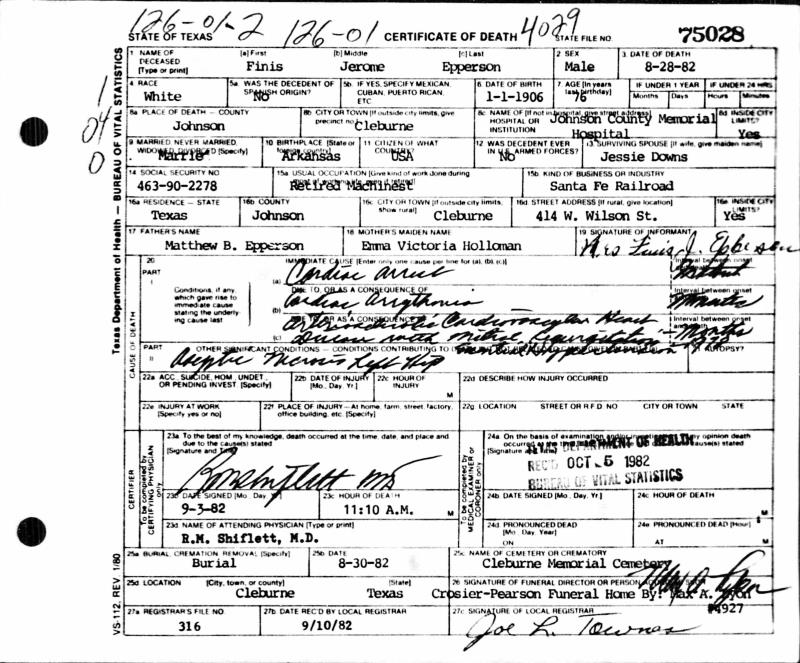 126-01-2 126-01 4029
STATE OF TEXAS CERTIFICATE OF DEATH STATE FILE NO. 75028
1 NAME OF DECEASED [Type or print] [a] First [b] Middle [c] Last 2 SEX 3 DATE OF DEATH
Finis Jerome Epperson Male 8-28-82
4 RACE 5a. WAS THE DECEDENT OF SPANISH ORIGIN? 5b. IF YES, SPECIFY MEXICAN, CUBAN, PUERTO RICAN, ETC 6 DATE OF BIRTH 7. AGE [In years last birthday] IF UNDER 1 YEAR IF UNDER 24 HRS
White No 1-1-1906 76 Months Days Hours Minutes
8a PLACE OF DEATH - COUNTY 8b CITY OR TOWN [If outside city limits, give precinct no.] 8c NAME OF [If not in hospital, give street address] HOSPITAL OR INSTITUTION 8d INSIDE CITY LIMITS?
Johnson Cleburne Johnson County Memorial Hospital Yes
9 MARRIED, NEVER MARRIED, WIDOWED, DIVORCED [Specify] 10 BIRTHPLACE [State or foreign country] 11 CITIZEN OF WHAT COUNTRY? 12 WAS DECEDENT EVER IN U.S. ARMED FORCES? 13 SURVIVING SPOUSE [If wife, give maiden name]
Arkansas USA No Jessie Downs
14 SOCIAL SECURITY NO 15a USUAL OCCUPATION [Give kind of work done during most of working life, even if retired] 15b KIND OF BUSINESS OR INDUSTRY
463-90-2278 Retired Machinest Santa Fe Railroad
16a RESIDENCE - STATE 16b COUNTY 16c CITY OR TOWN [If outside city limits, show rural] 16d. STREET ADDRESS [If rural, give location] 16e INSIDE CITY LIMITS?
Texas Johnson Cleburne 414 W. Wilson St. Yes
17 FATHER'S NAME 18 MOTHER'S MAIDEN NAME 19 SIGNATURE OF INFORMANT
Matthew B. Epperson Emma Victoria Holloman Mrs Finis J. Epperson
20 PART I IMMEDIATE CAUSE [Enter only one cause per line for (a), (b), (c)] Interval between onset
(a) Cardiac arrest
Conditions, if any, which gave rise to immediate cause stating the underlying cause last
DUE TO, OR AS A CONSEQUENCE OF Interval between onset
(b) Cardiac
DUE TO, OR AS A CONSEQUENCE Interval between onset
(c) Cardiovascular Heart
with Mitral Regurgitation - Months
PART II OTHER SIGNIFICANT CONDITIONS - CONDITIONS CONTRIBUTING TO 21 AUTOPSY?
Aseptic Necrosis Hip
22a ACC, SUICIDE, HOM, UNDET, OR PENDING INVEST [Specify] 22b DATE OF INJURY [Mo., Day, Yr] 22c HOUR OF INJURY M 22d DESCRIBE HOW INJURY OCCURRED
22e INJURY AT WORK [Specify yes or no] 22f PLACE OF INJURY - At home, farm, street, factory, office building, etc. [Specify] 22g LOCATION STREET OR R F D NO CITY OR TOWN STATE
CERTIFIER To be completed by CERTIFYING PHYSICIAN only
23a To the best of my knowledge, death occurred at the time, date, and place and due to the cause(s) stated
[Signature and Title]
R M Shiflett MD
23b DATE SIGNED [Mo., Day, Yr.] 23c HOUR OF DEATH
9-3-82 11:10 A.M. M
23d NAME OF ATTENDING PHYSICIAN [Type or print]
R.M. Shiflett, M.D.
To be completed by MEDICAL EXAMINER or CORONER only
24a. On the basis of examination and/or investigation, in my opinion death occurred
[Signature and Title]
DEPARTMENT OF HEALTH
REC'D OCT 5 1982
BUREAU OF VITAL STATISTICS
24b DATE SIGNED [Mo., Day, Yr] 24c HOUR OF DEATH M
24d PRONOUNCED DEAD [Mo. Day, Year] ON 24e PRONOUNCED DEAD [Hour] AT M
25a BURIAL, CREMATION, REMOVAL [Specify] 25b DATE 25c NAME OF CEMETERY OR CREMATORY
Burial 8-30-82 Cleburne Memorial Cemetery
25d LOCATION [City, town, or county] [State] 26 SIGNATURE OF FUNERAL DIRECTOR OR PERSON
Cleburne Texas Crosier-Pearson Funeral Home By: Max A.
#4927
27a REGISTRAR'S FILE NO 27b DATE REC'D BY LOCAL REGISTRAR 27c SIGNATURE OF LOCAL REGISTRAR
316 9/10/82 Joe L. Townes
Texas Department of Health - BUREAU OF VITAL STATISTICS
CAUSE OF DEATH
VS-112, REV. 1/80
1
04
0